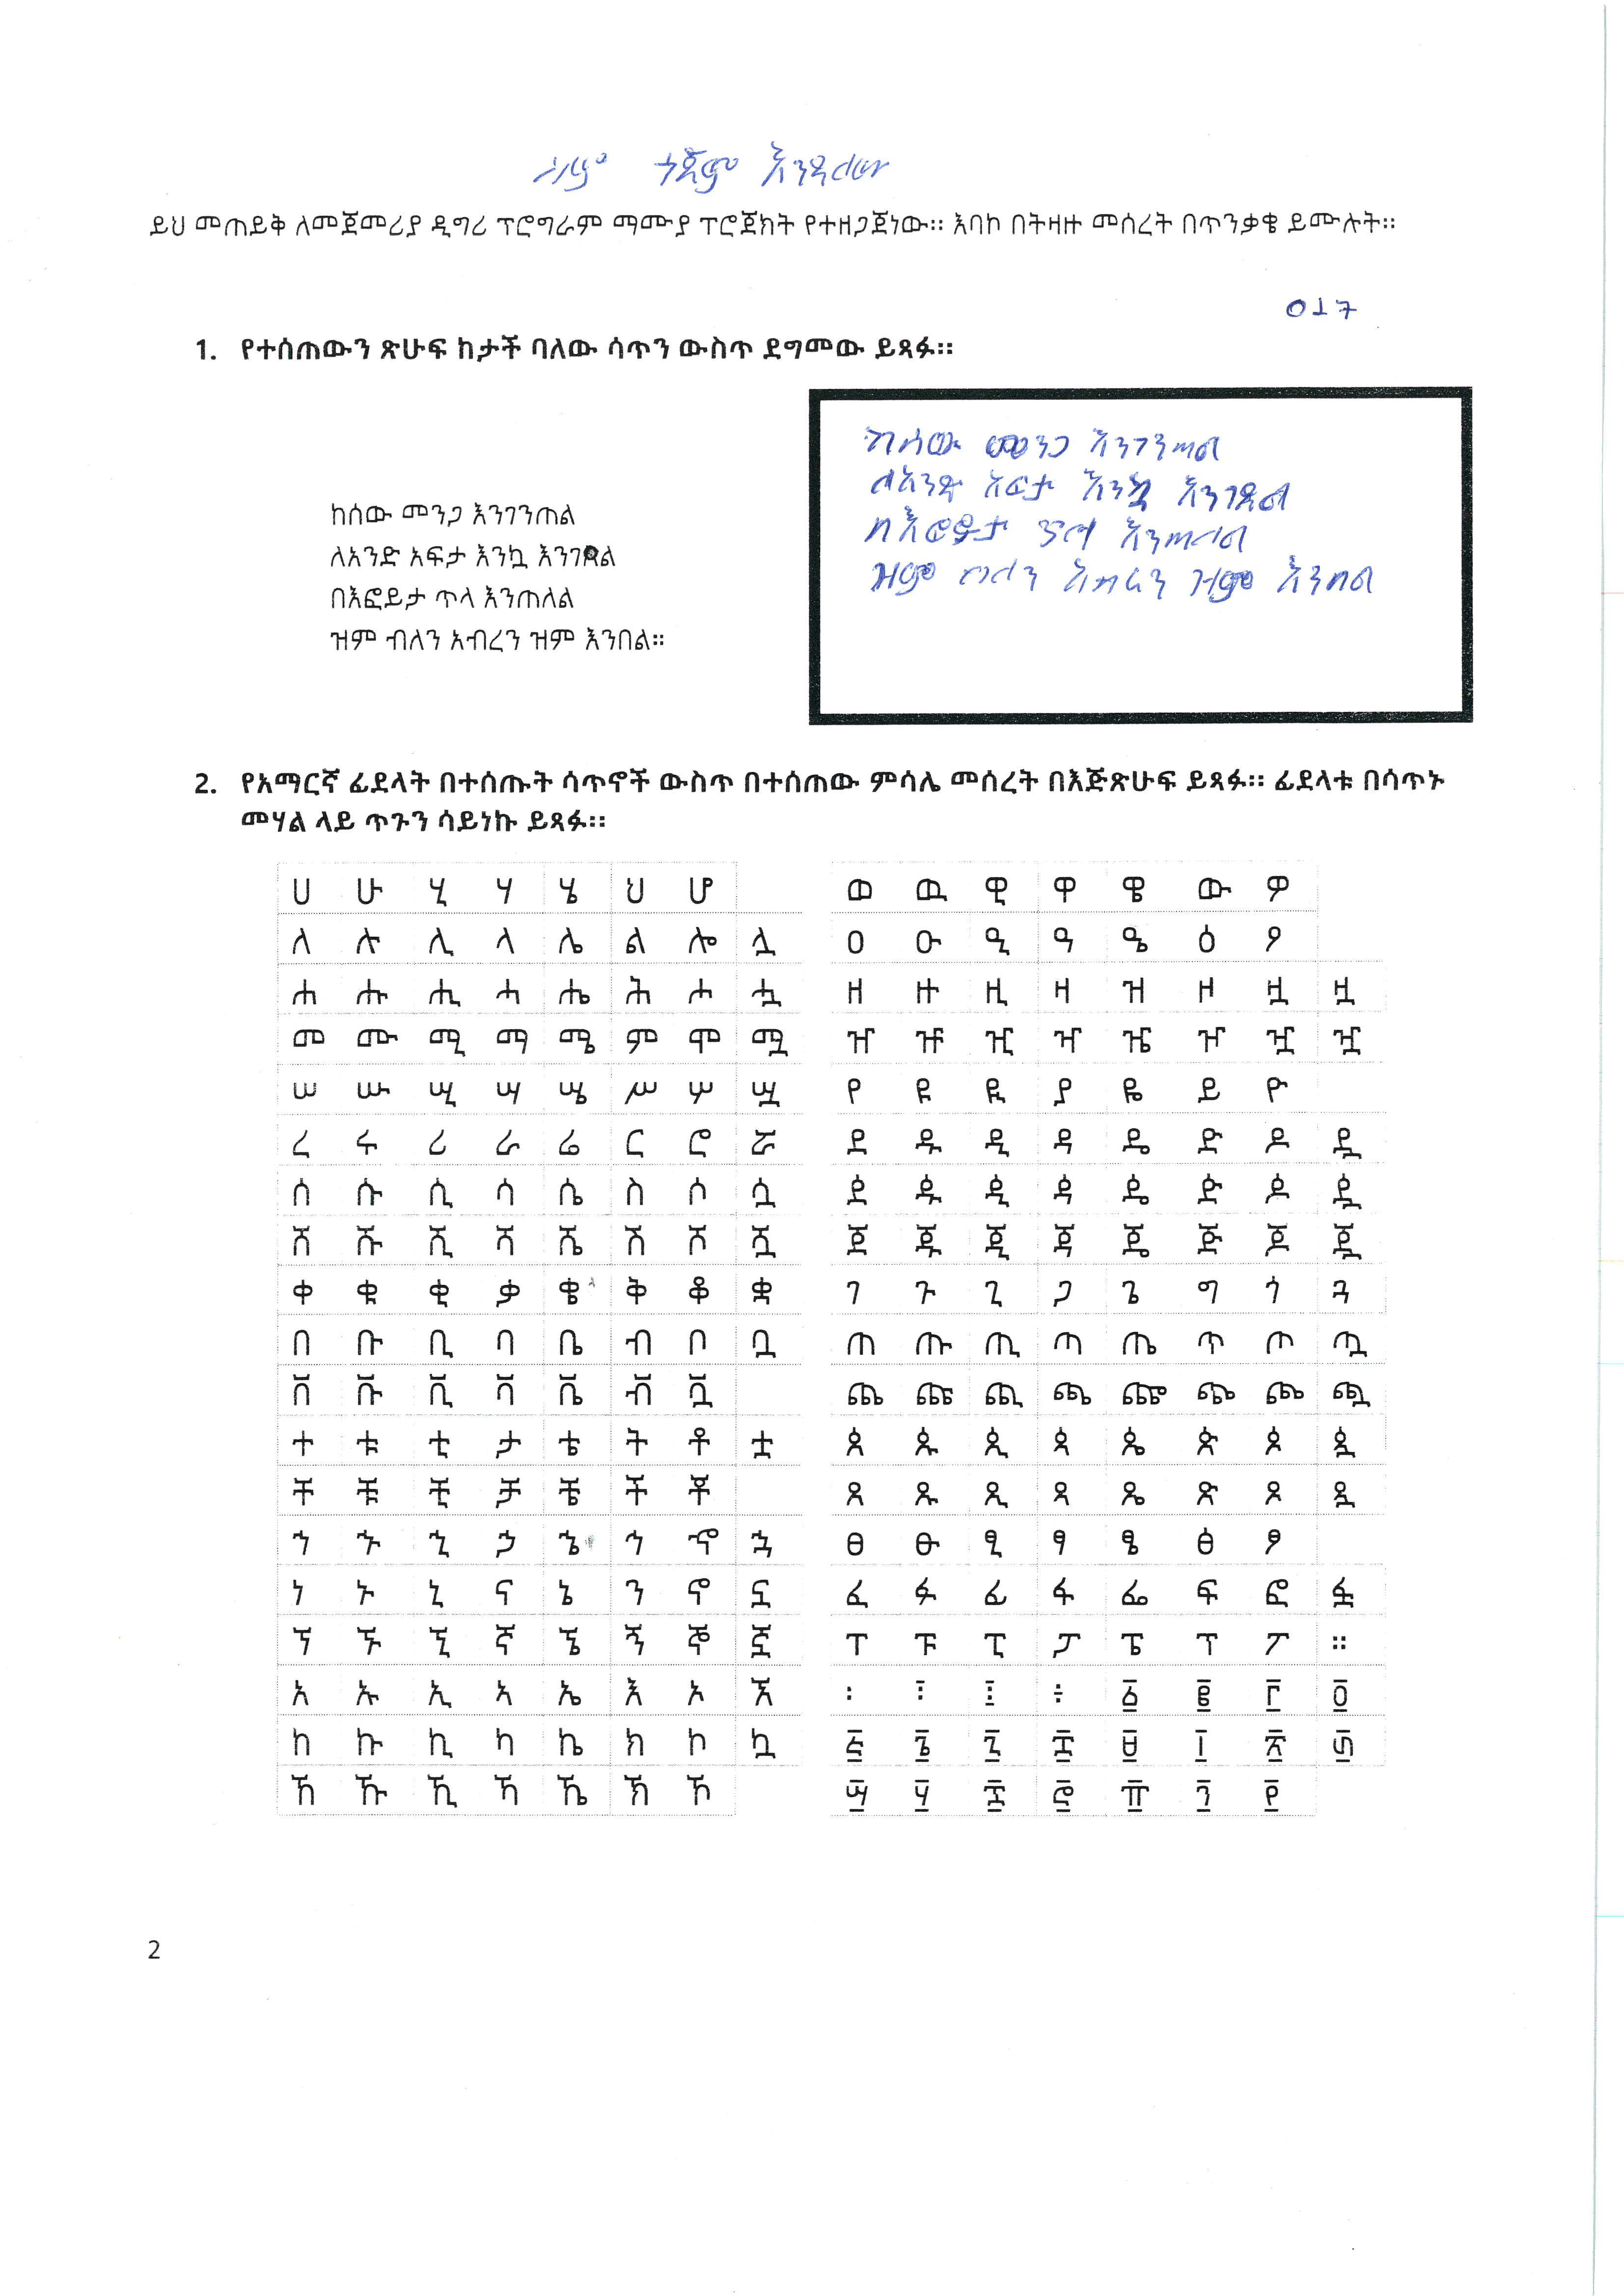 እንዳለው
ይህ መጠይቅ ለመጀመሪያ ዲግሪ ፕሮግራም ማሙያ ፕሮጀክት የተዘጋጀነው። እባኮ በትዛዙ መሰረት በጥንቃቄ ይሙሉት።
017
1. የተሰጠውን ጽሁፍ ከታች ባለው ሳጥን ውስጥ ደግመው ይጻፉ።
ከሰው መንጋ እንገንጠል
ለአንድ አፍታ እንኳ እንገጸል
በእፎይታ ጥላ እንጠለል
ዝም ብለን አብረን ዝም እንበል።
ከሰው መንጋ እንገንጠል
ለአንድ አፍታ እንኳ እንገጸል
በእፎይታ ጥላ እንጠለል
ዝም ብለን አብረን ዝም እንበል
2. የአማርኛ ፊደላት በተሰጡት ሳጥኖች ውስጥ በተሰጠው ምሳሌ መሰረት በእጅጽሁፍ ይጻፉ። ፊደላቱ በሳጥኑ
መሃል ላይ ጥጉን ሳይነኩ ይጻፉ።
ሀ ሁ ሂ ሃ ሄ ህ ሆ
ለ ሉ ሊ ላ ሌ ል ሎ ሏ
ሐ ሑ ሒ ሓ ሔ ሕ ሖ ሗ
መ ሙ ሚ ማ ሜ ም ሞ ሟ
ሠ ሡ ሢ ሣ ሤ ሥ ሦ ሧ
ረ ሩ ሪ ራ ሬ ር ሮ ሯ
ሰ ሱ ሲ ሳ ሴ ስ ሶ ሷ
ሸ ሹ ሺ ሻ ሼ ሽ ሾ ሿ
ቀ ቁ ቂ ቃ ቄ ቅ ቆ ቋ
በ ቡ ቢ ባ ቤ ብ ቦ ቧ
ቨ ቩ ቪ ቫ ቬ ቭ ቯ
ተ ቱ ቲ ታ ቴ ት ቶ ቷ
ቸ ቹ ቺ ቻ ቼ ች ቾ
ኀ ኁ ኂ ኃ ኄ ኅ ኆ ኋ
ነ ኑ ኒ ና ኔ ን ኖ ኗ
ኘ ኙ ኚ ኛ ኜ ኝ ኞ ኟ
አ ኡ ኢ ኣ ኤ እ ኦ ኧ
ከ ኩ ኪ ካ ኬ ክ ኮ ኳ
ኸ ኹ ኺ ኻ ኼ ኽ ኾ
ወ ዉ ዊ ዋ ዌ ው ዎ
ዐ ዑ ዒ ዓ ዔ ዕ ዖ
ዘ ዙ ዚ ዛ ዝ ዞ ዟ ዟ
ዠ ዡ ዢ ዣ ዤ ዦ ዧ ዧ
የ ዩ ዪ ያ ዬ ይ ዮ
ደ ዱ ዲ ዳ ዴ ድ ዶ ዷ
ዸ ዹ ዺ ዻ ዼ ዽ ዾ ዿ
ጀ ጁ ጂ ጃ ጄ ጅ ጆ ጇ
ገ ጉ ጊ ጋ ጌ ግ ጎ ጓ
ጠ ጡ ጢ ጣ ጤ ጥ ጦ ጧ
ጨ ጩ ጪ ጫ ጬ ጭ ጮ ጯ
ጰ ጱ ጲ ጳ ጴ ጵ ጶ ጷ
ጸ ጹ ጺ ጻ ጼ ጽ ጾ ጿ
ፀ ፁ ፂ ፃ ፄ ፅ ፆ
ፈ ፉ ፊ ፋ ፌ ፍ ፎ ፏ
ፐ ፑ ፒ ፓ ፔ ፕ ፖ ።
፡ ፣ ፤ ÷ ፩ ፪ ፫ ፬
፭ ፮ ፯ ፰ ፱ ፲ ፳ ፴
፵ ፶ ፷ ፸ ፹ ፺ ፻
2